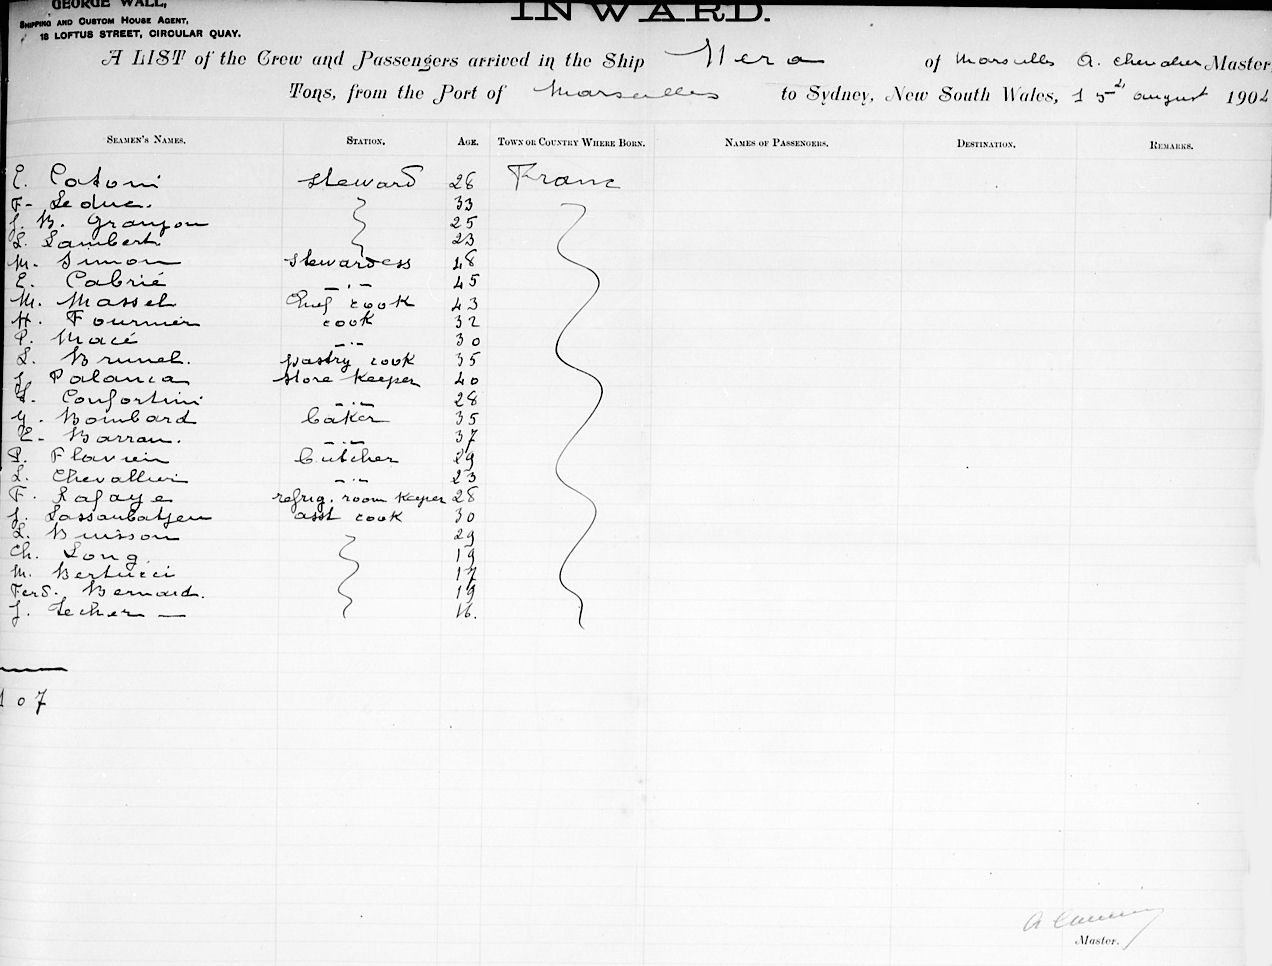 GEORGE WALL,
INWARD.
SHIPPING AND CUSTOM HOUSE AGENT,
18 LOFTUS STREET, CIRCULAR QUAY.
A LIST of the Crew and Passengers arrived in the Ship Nera of Marseilles A. Chevalier Master,
Tons, from the Port of Marseilles to Sydney, New South Wales, 15th august 1904
SEAMEN'S NAMES. STATION. AGE. TOWN OR COUNTRY WHERE BORN. NAMES OF PASSENGERS. DESTINATION. REMARKS.
C. Catoni steward 28 Franc
F- Leduc. 33
J. B. Granjon 25
L. Lambert 23
M. Simon stewardess 48
E. Cabrié -"- 45
M. Massel Chief cook 43
H. Fournier cook 32
P. Macé -"- 30
L. Brunel. pastry cook 35
J. Palanca store keeper 40
L. Confortini -"- 28
G. Bombard baker 35
E- Barrau. -"- 37
P. Flavien butcher 29
L. Chevallier -"- 23
F. Lafaye refrig. room keeper 28
J. Lassoubatjeu asst cook 30
L. Buisson 29
Ch. Long 19
M. Bertucci 17
Ferd. Bernard. 19
J. Lecher — 16.
107
Master.